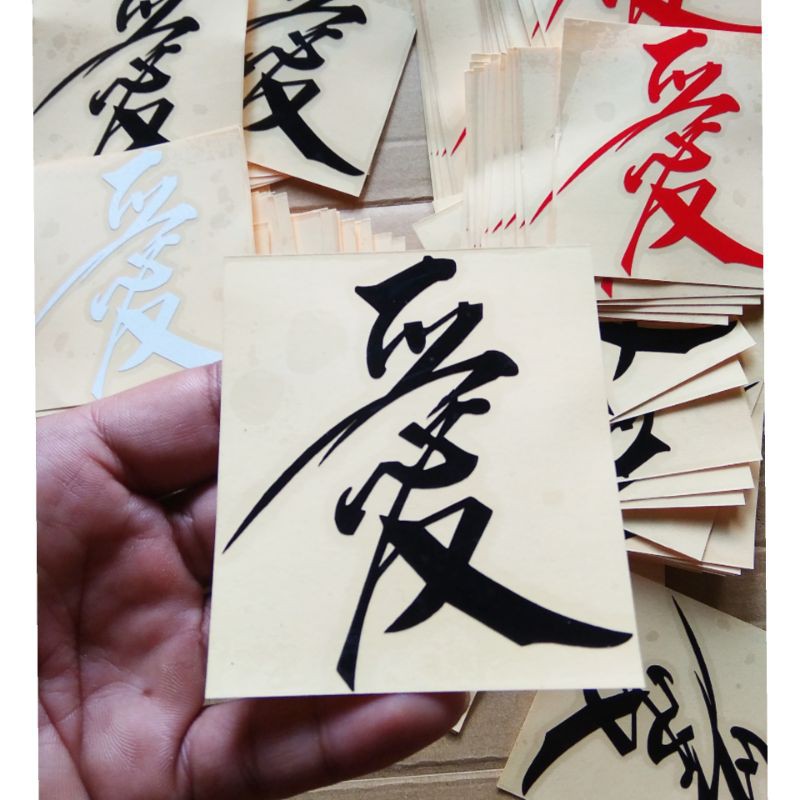 愛
愛
愛
愛
愛
愛